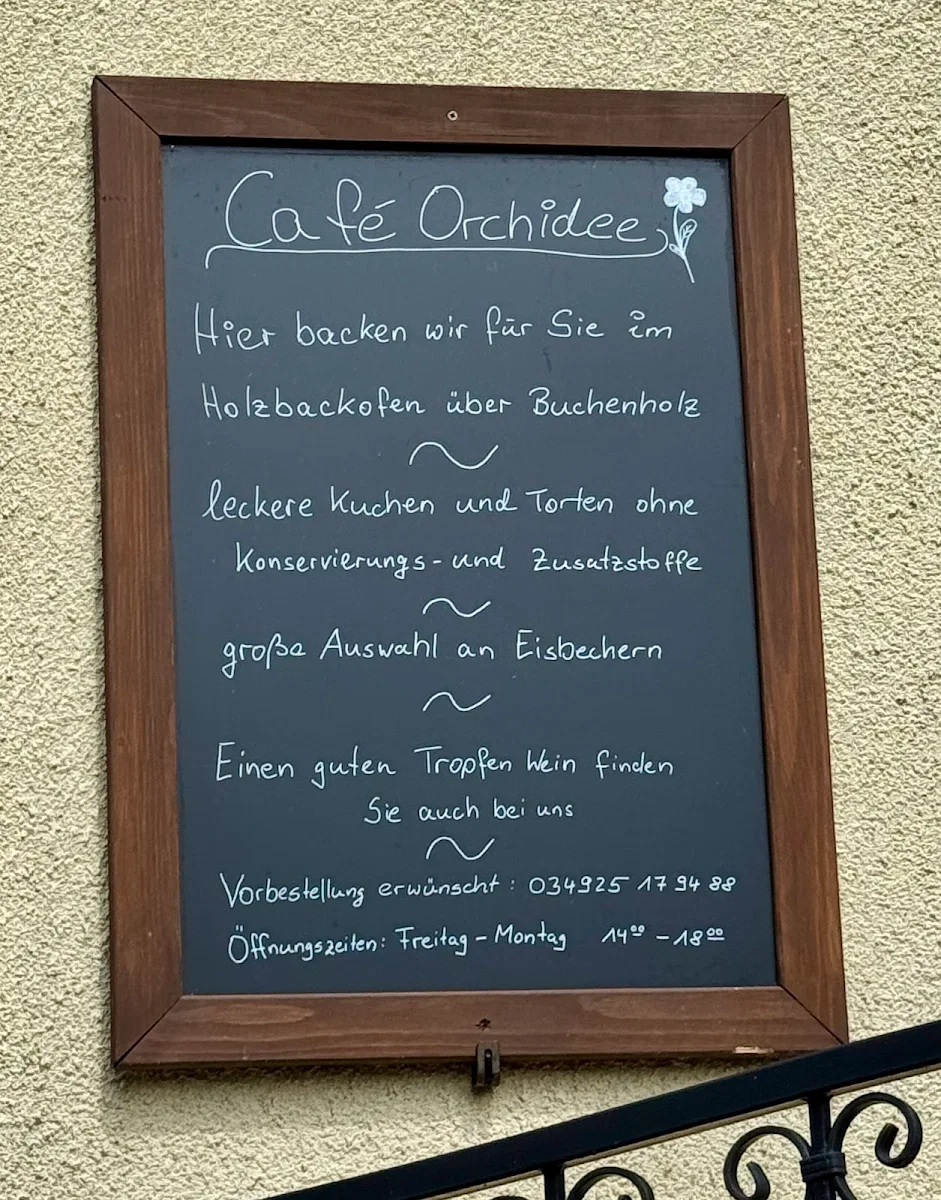 Café Orchidee
Hier backen wir für Sie im
Holzbackofen über Buchenholz
~
leckere Kuchen und Torten ohne
Konservierungs- und Zusatzstoffe
~
große Auswahl an Eisbechern
~
Einen guten Tropfen Wein finden
Sie auch bei uns
~
Vorbestellung erwünscht: 034925 17 94 88
Öffnungszeiten: Freitag - Montag 14⁰⁰ - 18⁰⁰